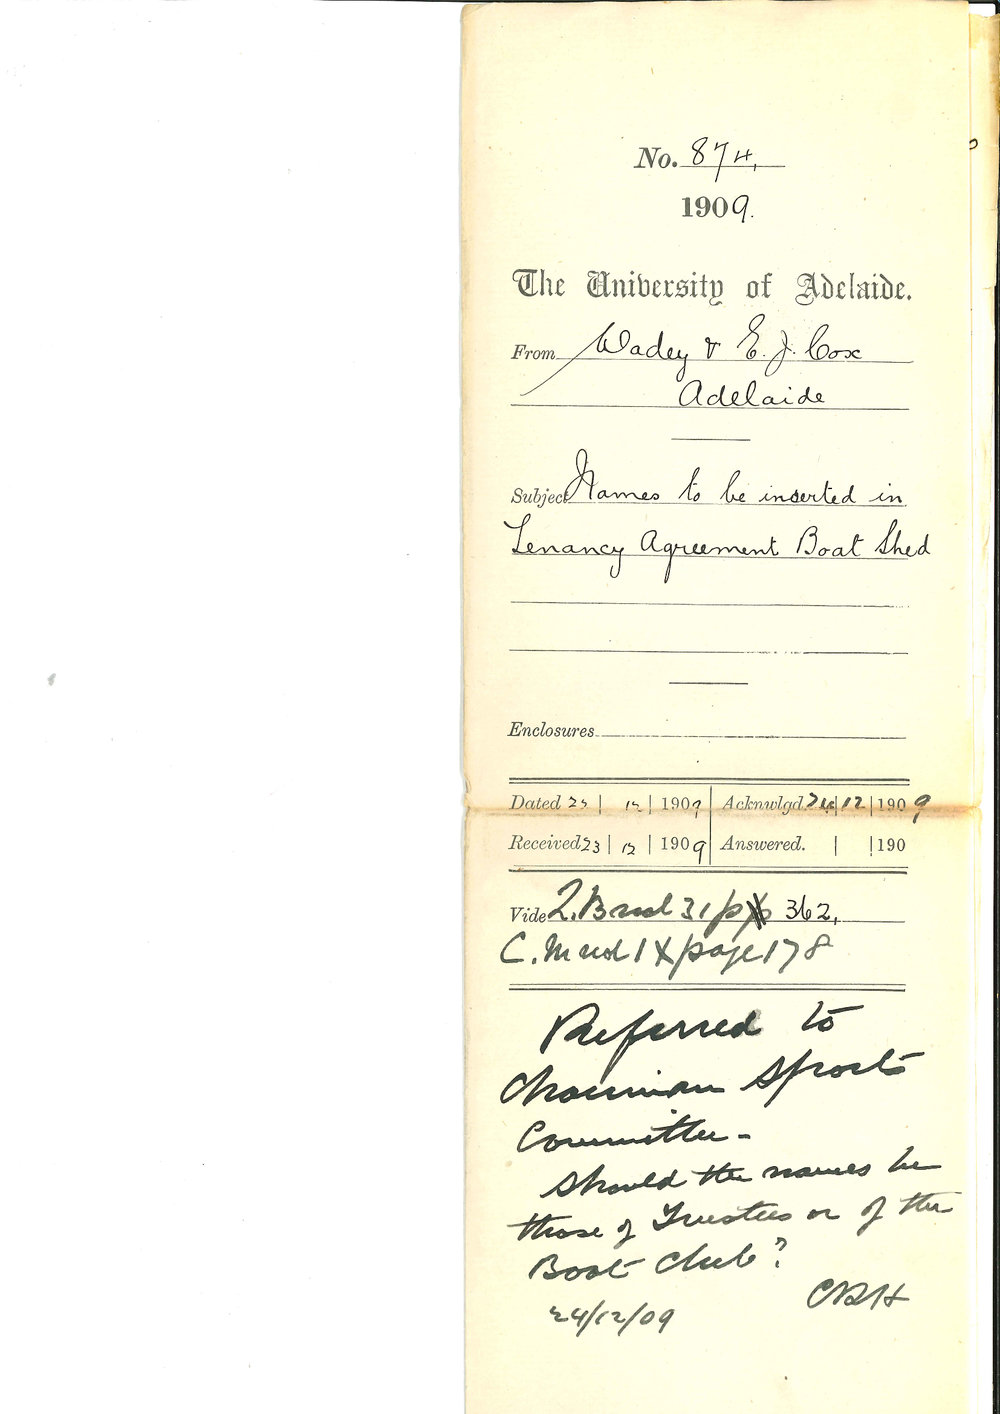 No. 874.
1909.
The University of Adelaide.
From Wadey & E. J. Cox
Adelaide
Subject Names to be inserted in
Tenancy Agreement Boat Shed
Enclosures
Dated | 12 | 1909 Acknwlgd. 24 | 12 | 1909
Received 23 | 12 | 1909 Answered. | | 190
Vide L. B vol 31 p 362.
C. M vol IX page 178
Referred to
Chairman Sports
Committee -
Should the names be
those of Trustees or of the
Boat Club?
CRH
24/12/09